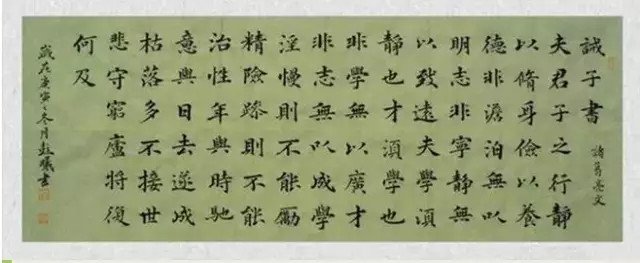 誡子書
諸葛亮文
夫君子之行靜
以脩身儉以養
德非澹泊無以
明志非寧靜無
以致遠夫學須
靜也才須學也
非學無以廣才
非志無以成學
淫慢則不能勵
精險躁則不能
治性年與時馳
意與日去遂成
枯落多不接世
悲守窮廬將復
何及
歲在庚寅冬月書